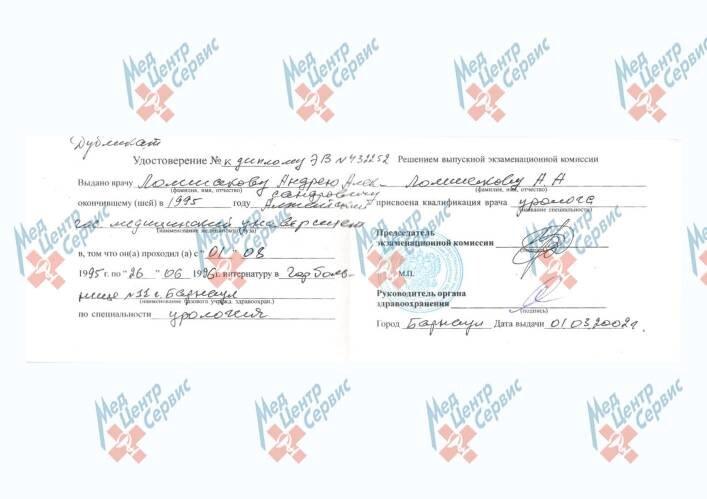 Мед Центр Сервис
Мед Центр Сервис
Мед Центр Сервис
Мед Центр Сервис
Дубликат
Удостоверение № к диплому ЭВ № 432252
Выдано врачу Ломшакову Андрею Алек-
(фамилия, имя, отчество) сандровичу
окончившему (шей) в 1995 году Алтайский
гос. медицинский университет
(наименование медицинского вуза)
в, том что он(а) проходил (а) с "01" 08
1995 г. по "26" 06 1996 г. интернатуру в Гор боль-
нице №11 г. Барнаул
(наименование базового учрежд. здравоохран.)
по специальности урология
Решением выпускной экзаменационной комиссии
Ломшакову А А
(фамилия, имя, отчество)
присвоена квалификация врача уролога
(название специальности)
Председатель
экзаменационной комиссии
(подпись)
М.П.
Руководитель органа
здравоохранения
(подпись)
Город Барнаул Дата выдачи 01.03.2002г.
Мед Центр Сервис
Мед Центр Сервис
Мед Центр Сервис
Мед Центр Сервис